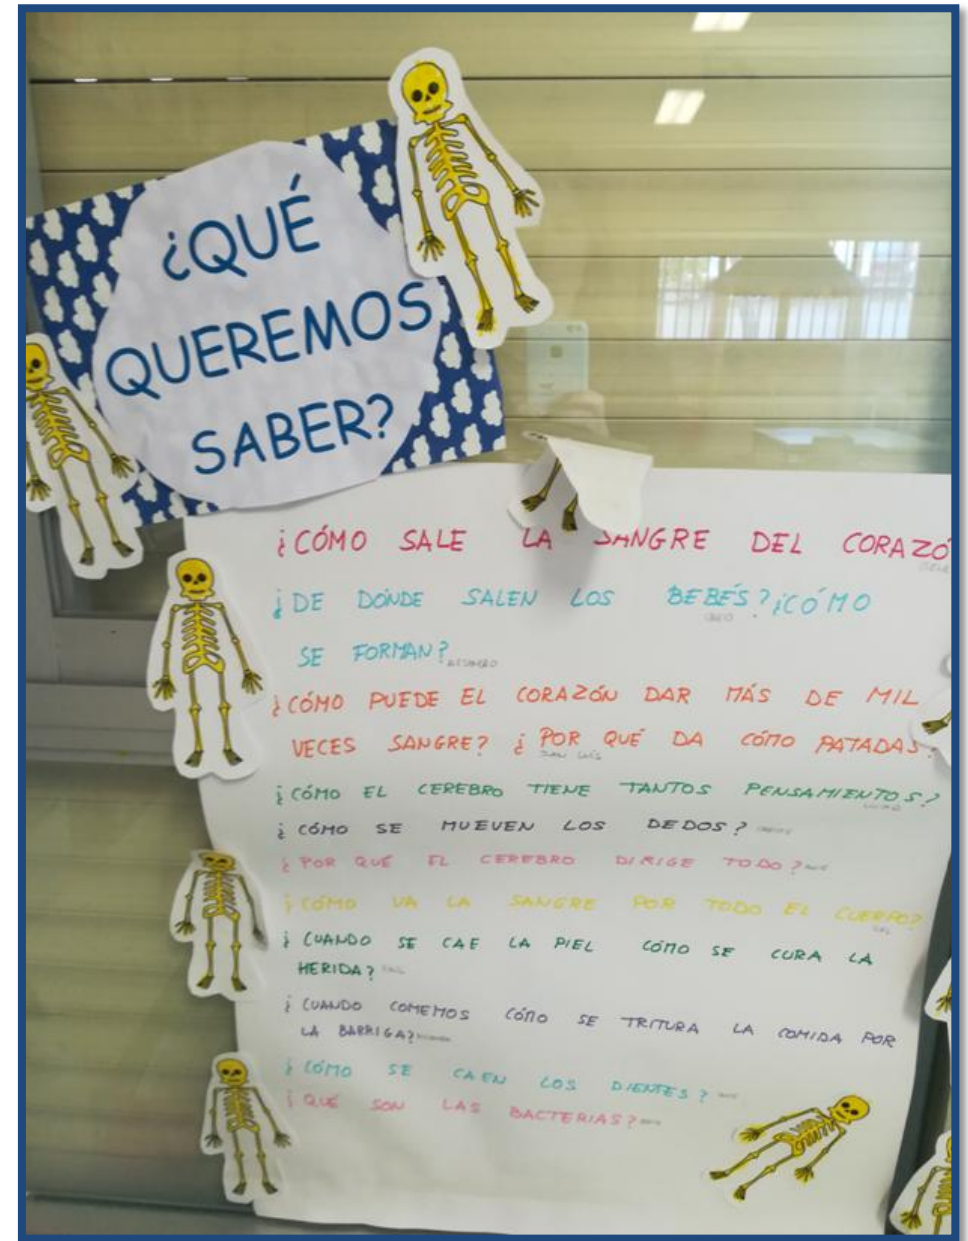 ¿QUÉ
QUEREMOS
SABER?
¿CÓMO SALE LA SANGRE DEL CORAZÓ
¿DE DÓNDE SALEN LOS BEBÉS? ¿CÓMO
SE FORMAN?
¿CÓMO PUEDE EL CORAZÓN DAR MÁS DE MIL
VECES SANGRE? ¿POR QUÉ DA CÓMO PATADAS?
¿CÓMO EL CEREBRO TIENE TANTOS PENSAMIENTOS?
¿CÓMO SE MUEVEN LOS DEDOS?
¿POR QUÉ EL CEREBRO DIRIGE TODO?
¿CÓMO VA LA SANGRE POR TODO EL CUERPO?
¿CUANDO SE CAE LA PIEL CÓMO SE CURA LA
HERIDA?
¿CUANDO COMEMOS CÓMO SE TRITURA LA COMIDA POR
LA BARRIGA?
¿CÓMO SE CAEN LOS DIENTES?
¿QUÉ SON LAS BACTERIAS?